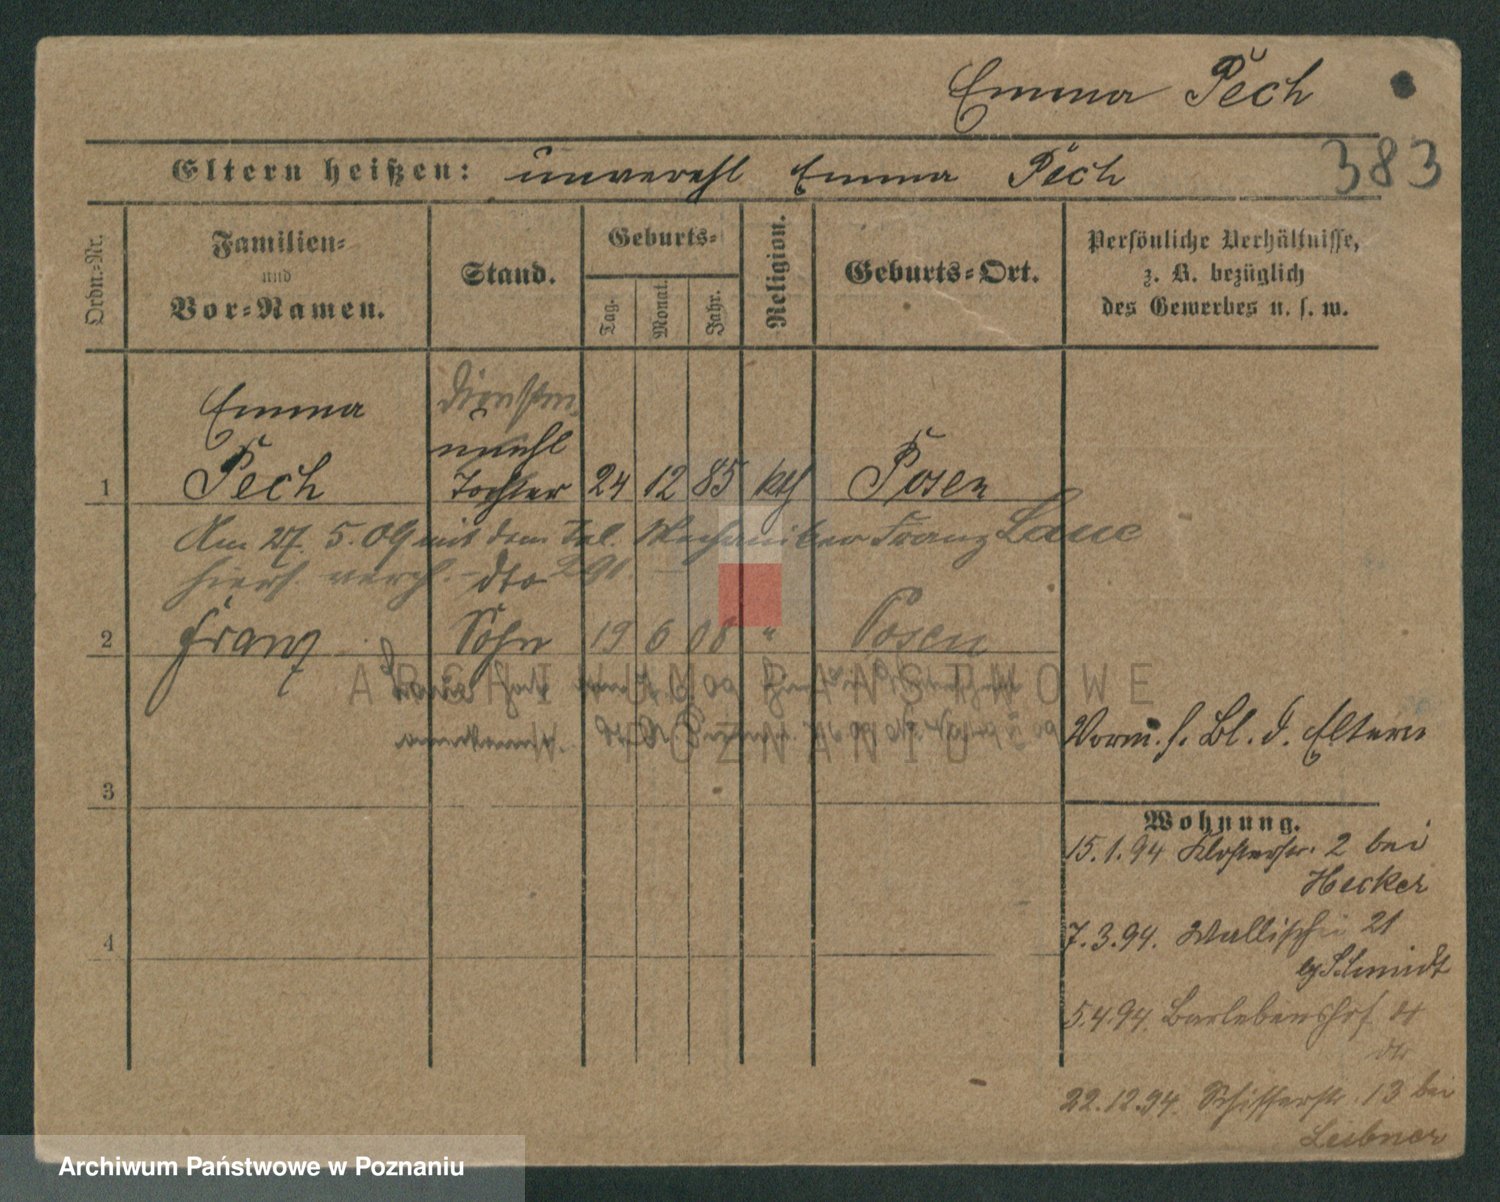 Emma Pech
383
Eltern heißen: unverehl Emma Pech
Ordn.-Nr.
Familien-
und
Vor-Namen.
Stand.
Geburts-
Tag.
Monat.
Jahr.
Religion.
Geburts-Ort.
Persönliche Verhältnisse,
z. B. bezüglich
des Gewerbes u. s. w.
Emma
unehl
1 Pech Tochter 24 12 85 kth Posen
Am 27. 5. 09 mit dem Tel. Mechaniker Franz Laue
hiers. verh. dto
2 Franz Sohn 19 6 08 " Posen
Laue hat
ARCHIWUM PAŃSTWOWE
W POZNANIU
Vorm. s. Bl. d. Eltern
3
Wohnung.
15.1.94 Klosterstr. 2 bei
Hecker
7.3.94. Wallischei 21
Schmidt
4
5.4.94. Barlebenshof
22.12.94. Schifferstr. 13 bei
Leibner
Archiwum Państwowe w Poznaniu